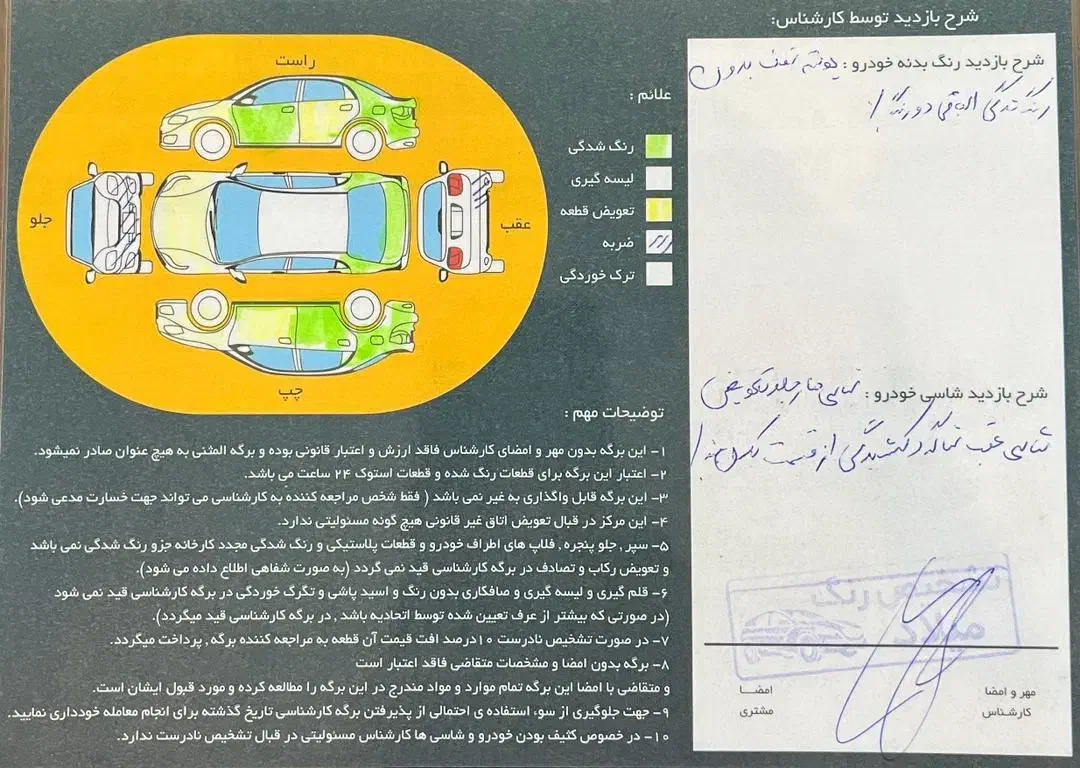 شرح بازدید توسط کارشناس:
شرح بازدید رنگ بدنه خودرو : بدون
رنگ شدگی الباقی دور رنگ /
شرح بازدید شاسی خودرو : شاسی جلو تعویض
شاسی عقب از قسمت
مهر و امضا
کارشناس
امضا
مشتری
راست
جلو
عقب
چپ
علائم :
رنگ شدگی
لیسه گیری
تعویض قطعه
ضربه
ترک خوردگی
توضیحات مهم :
۱- این برگه بدون مهر و امضای کارشناس فاقد ارزش و اعتبار قانونی بوده و برگه المثنی به هیچ عنوان صادر نمیشود.
۲- اعتبار این برگه برای قطعات رنگ شده و قطعات استوک ۲۴ ساعت می باشد.
۳- این برگه قابل واگذاری به غیر نمی باشد ( فقط شخص مراجعه کننده به کارشناسی می تواند جهت خسارت مدعی شود).
۴- این مرکز در قبال تعویض اتاق غیر قانونی هیچ گونه مسئولیتی ندارد.
۵- سپر , جلو پنجره , فلاپ های اطراف خودرو و قطعات پلاستیکی و رنگ شدگی مجدد کارخانه جزو رنگ شدگی نمی باشد
و تعویض رکاب و تصادف در برگه کارشناسی قید نمی گردد (به صورت شفاهی اطلاع داده می شود).
۶- قلم گیری و لیسه گیری و صافکاری بدون رنگ و اسید پاشی و تگرگ خوردگی در برگه کارشناسی قید نمی شود
(در صورتی که بیشتر از عرف تعیین شده توسط اتحادیه باشد , در برگه کارشناسی قید میگردد).
۷- در صورت تشخیص نادرست ۱۰درصد افت قیمت آن قطعه به مراجعه کننده برگه, پرداخت میگردد.
۸- برگه بدون امضا و مشخصات متقاضی فاقد اعتبار است
و متقاضی با امضا این برگه تمام موارد و مواد مندرج در این برگه را مطالعه کرده و مورد قبول ایشان است.
۹- جهت جلوگیری از سوء استفاده ی احتمالی از پذیرفتن برگه کارشناسی تاریخ گذشته برای انجام معامله خودداری نمایید.
۱۰- در خصوص کثیف بودن خودرو و شاسی ها کارشناس مسئولیتی در قبال تشخیص نادرست ندارد.